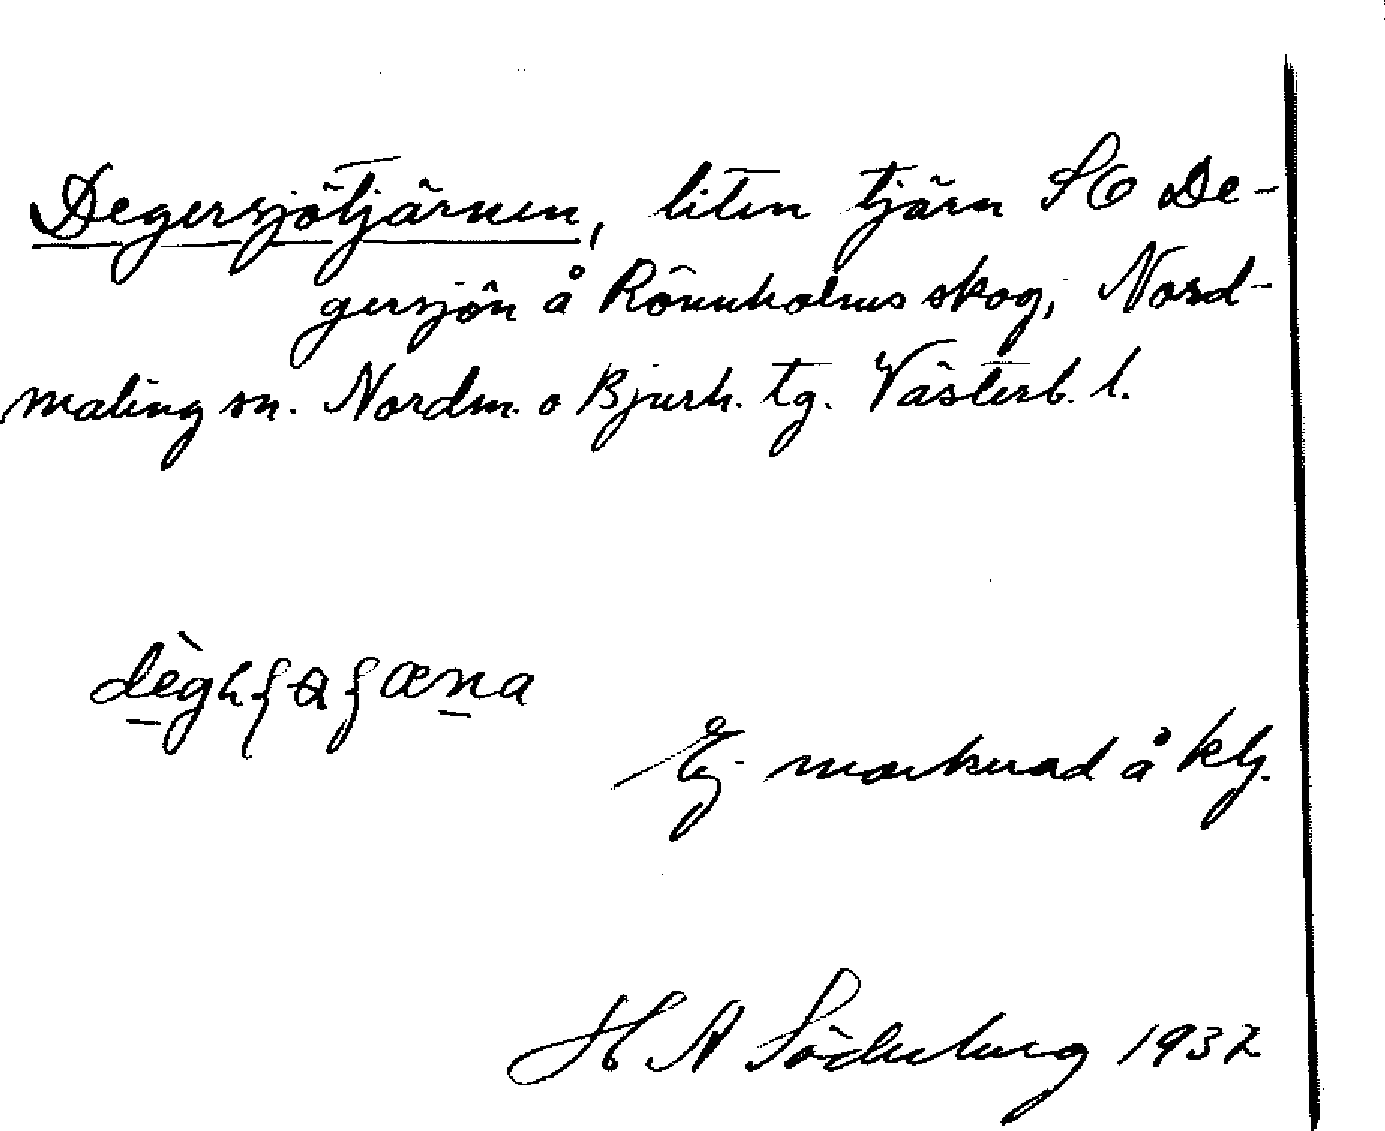 Degersjötjärnen, liten tjärn SO De-
gersjön å Rönnholms skog, Nord-
maling sn. Nordm. o Bjurh. tg. Västerb. l.
Ej marknad å kg.
H A Söderberg 1932